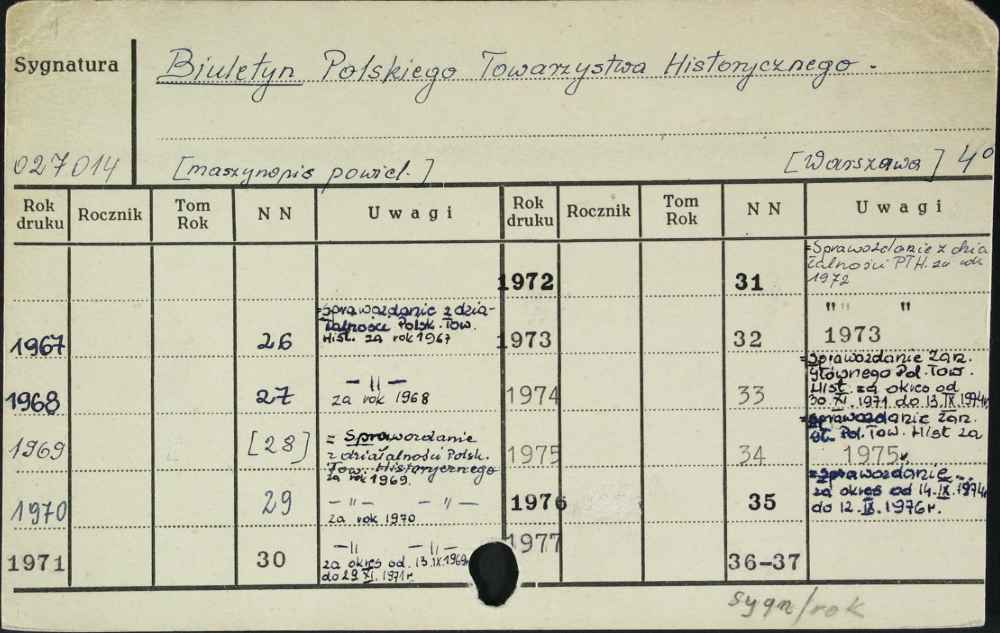 Sygnatura
Biuletyn Polskiego Towarzystwa Historycznego.
027014 [maszynopis powiel.] [Warszawa] 4º
Rok druku Rocznik Tom Rok NN Uwagi Rok druku Rocznik Tom Rok NN Uwagi
1967 26 =Sprawozdanie z dzia-
łalności Polsk. Tow.
Hist. za rok 1967
1968 27 — " —
za rok 1968
1969 [28] = Sprawozdanie
z działalności Polsk.
Tow. Historycznego
za rok 1969.
1970 29 — " — — " —
za rok 1970
1971 30 — " — — " —
za okres od 13.IX.1969
do 29.XI.1971r.
1972 31 =Sprawozdanie z dzia
łalności PTH. za rok
1972
1973 32 " " "
1973
1974 33 =Sprawozdanie Zarz.
Głównego Pol. Tow.
Hist. za okres od
30.XI.1971 do 13.IX.1974r
1975 34 =Sprawozdanie Zarz.
Gł. Pol. Tow. Hist za
1975r
1976 35 =Sprawozdanie...
za okres od 14.IX.1974r
do 12.IX.1976r.
1977 36-37
sygn/rok